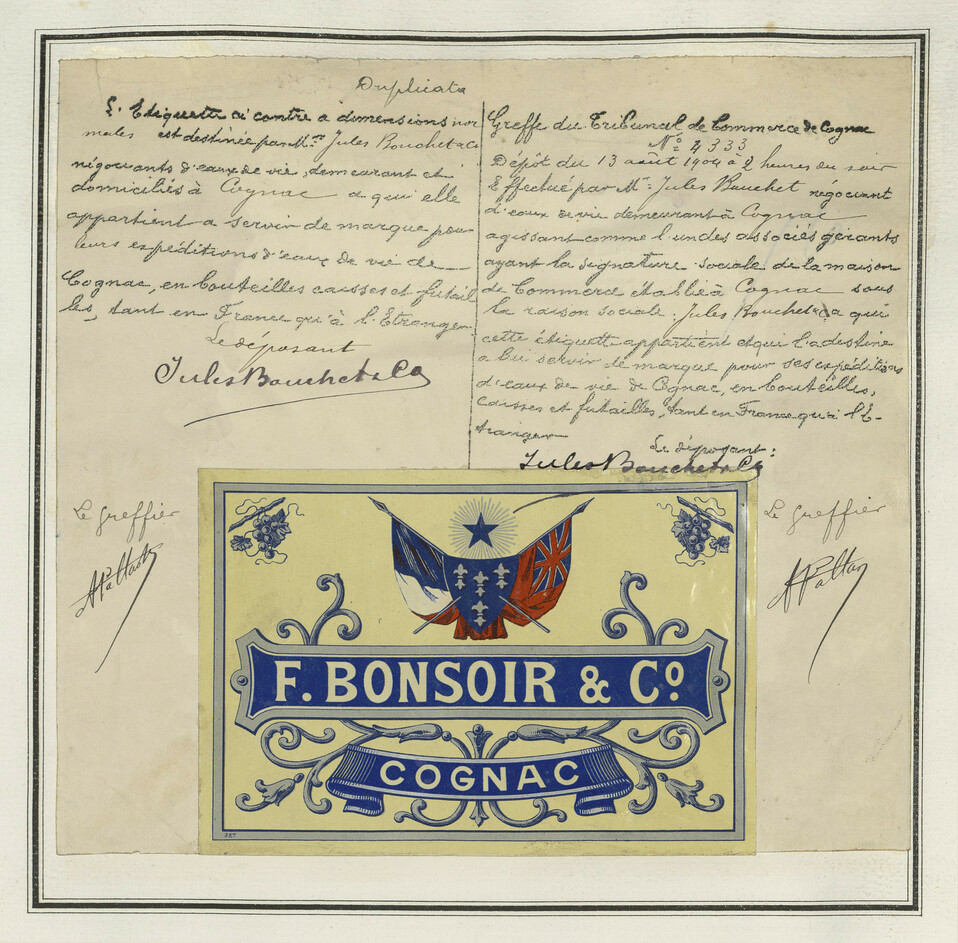 Duplicata
L'Etiquette ci contre a dimensions nor
males est destinée par Mrs Jules Bouchet & Co
négociants d'eaux de vie, demeurant et
domiciliés à Cognac a qui elle
appartient a servir de marque pour
leurs expéditions d'eaux de vie de
Cognac, en bouteilles caisses et futail
les, tant en France qu'à l'Etranger.
Le déposant
Jules Bouchet & Co
Greffe du Tribunal de Commerce de Cognac
No 4333
Dépôt du 13 août 1904 à 2 heures du soir
Effectué par Mr Jules Bouchet négociant
d'eaux de vie demeurant à Cognac
agissant comme l'un des associés gérants
ayant la signature sociale de la maison
de Commerce établie à Cognac sous
la raison sociale. Jules Bouchet & Co a qui
cette étiquette appartient et qui l'a destine
a lui servir de marque pour ses expéditions
d'eaux de vie de Cognac, en bouteilles,
caisses et futailles, tant en France qu'à l'E-
tranger
Le déposant:
Jules Bouchet & Co
Le Greffier
Le Greffier
F. BONSOIR & Co
COGNAC